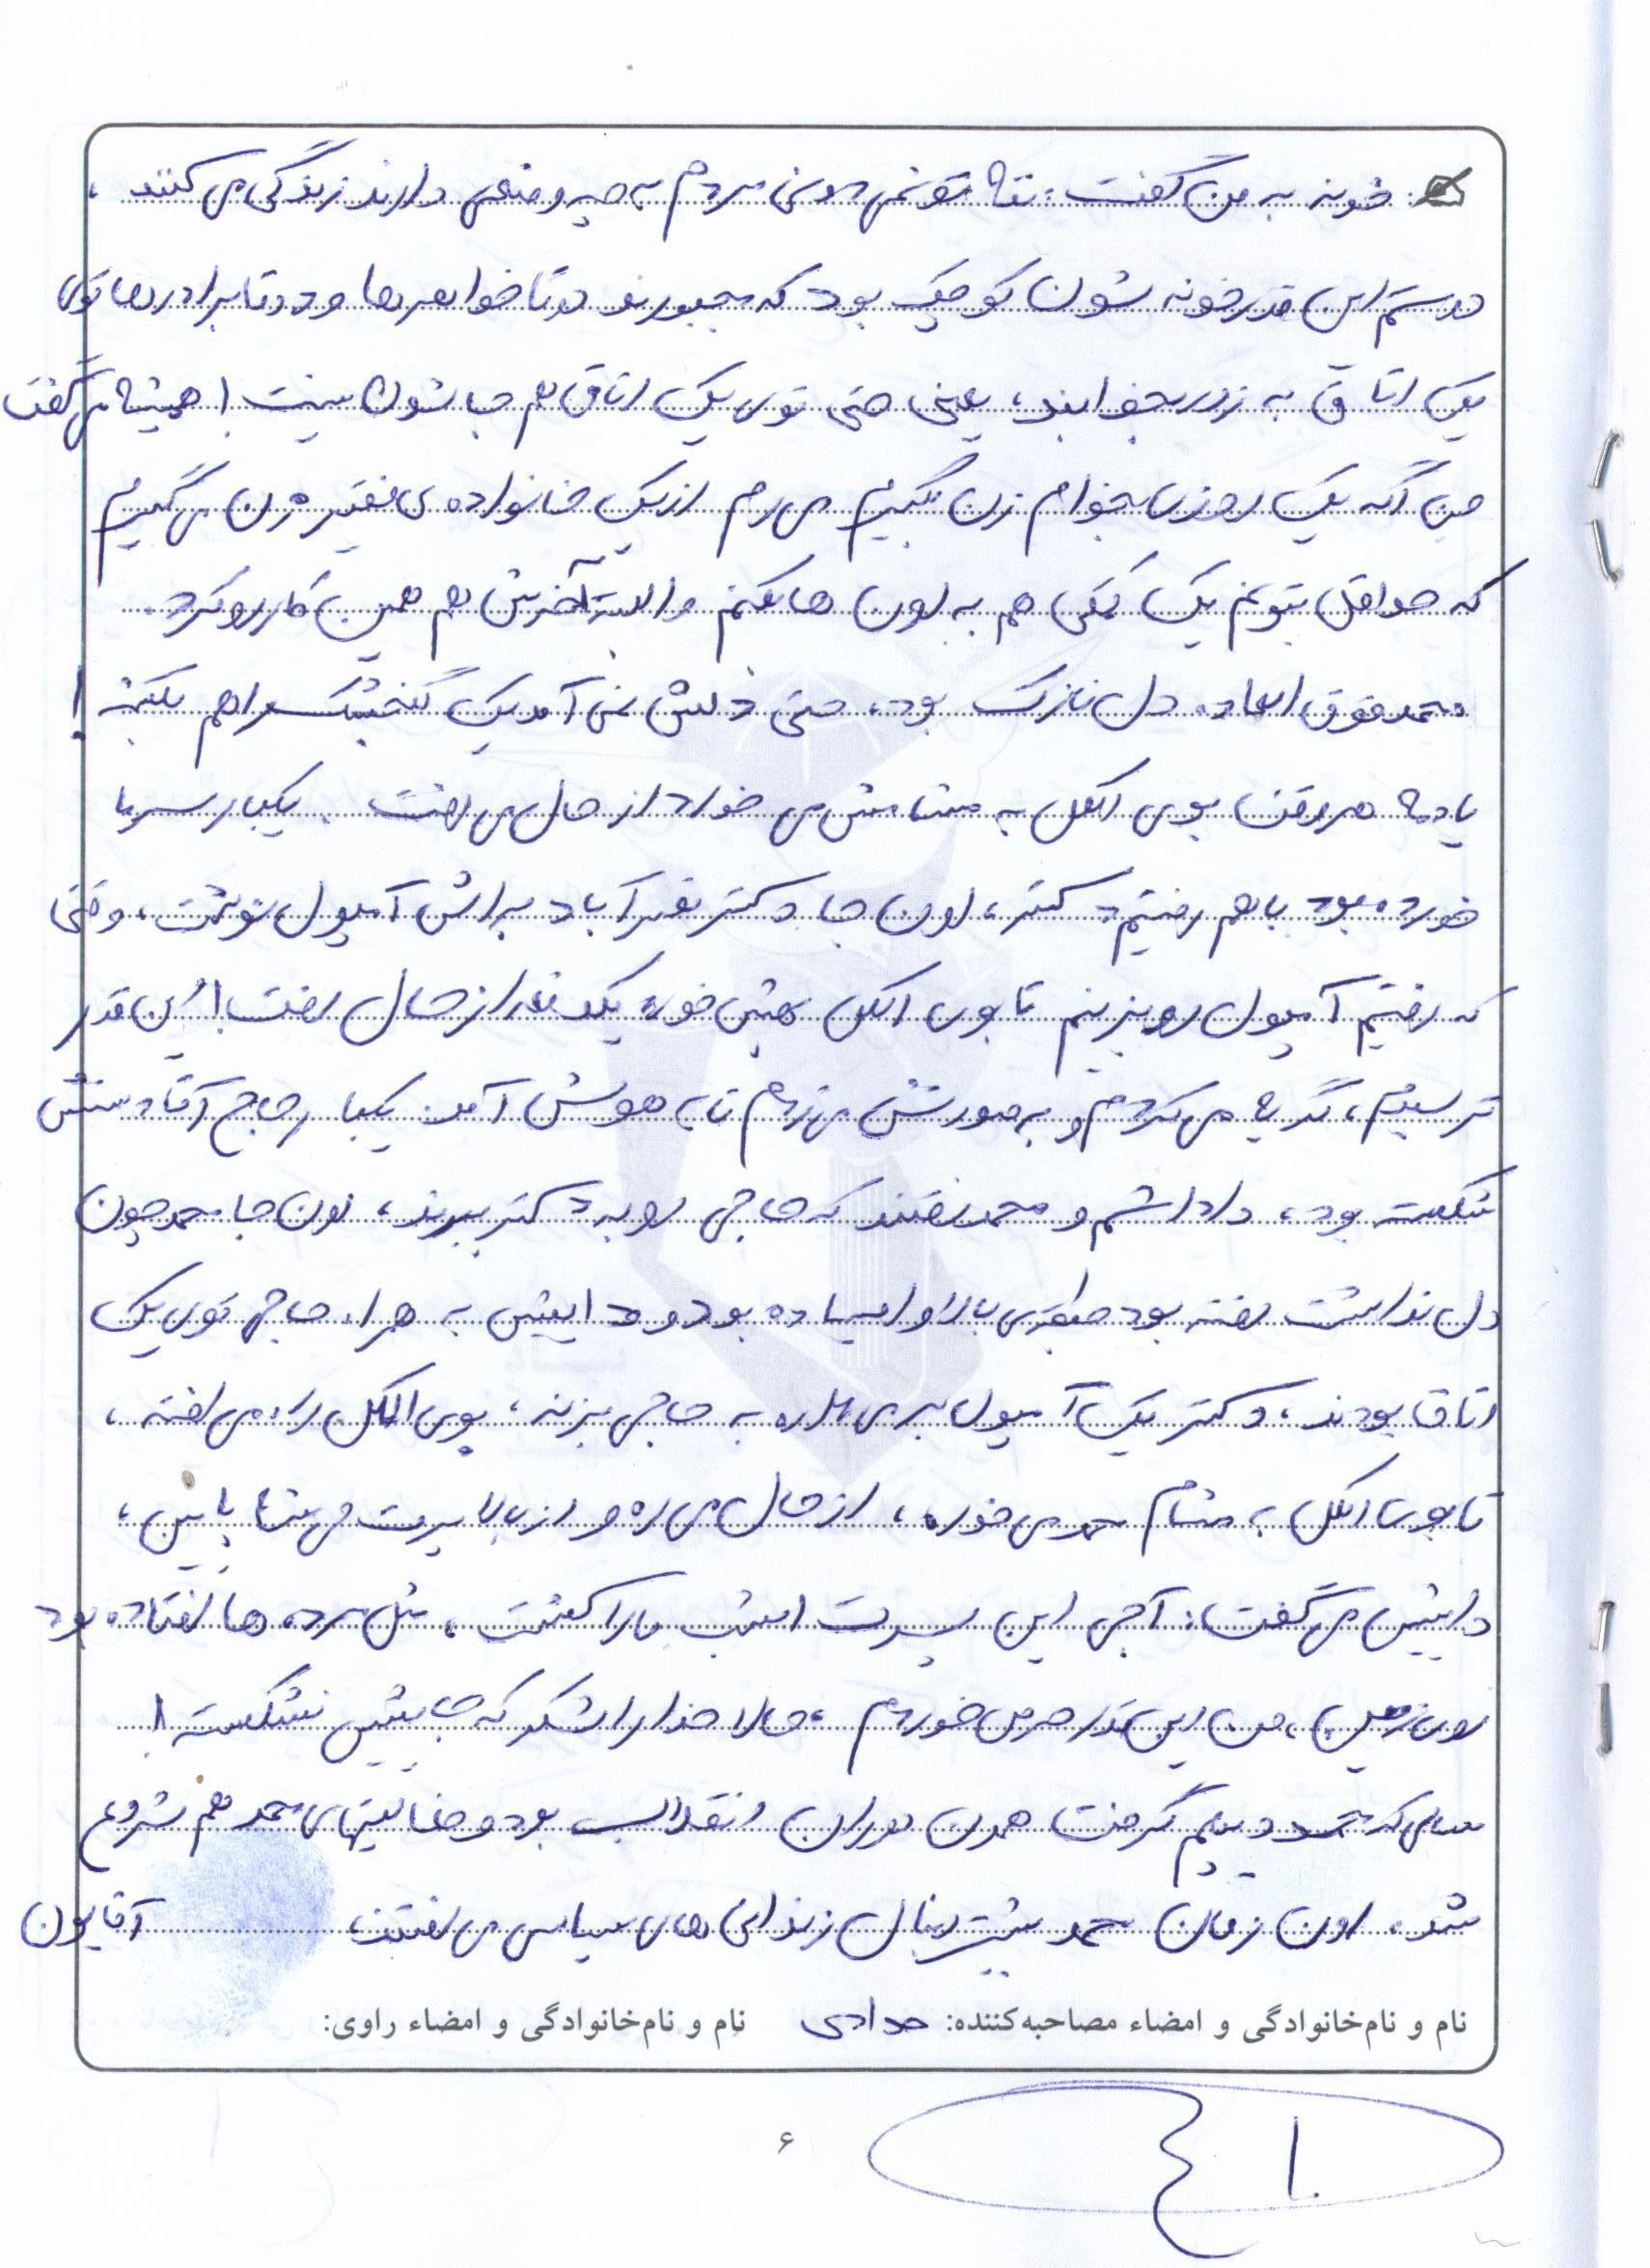 خونه به من گفت: ننه تو نمی دونی مردم به چه وضعی دارند زندگی می کنند،
دوستم این قدر خونه شون کوچیک بود که مجبورند دو تا خواهرها و دو تا برادرها توی
یک اتاق به زور بخوابند، یعنی حتی توی یک اتاق هم جاشون نیست! همیشه می گفت
من اگه یک روزی بخوام زن بگیرم می رم از یک خانواده ی فقیر زن می گیرم
که حداقل بتونم یک کمکی هم به اون ها بکنم و البته آخرش هم همین کار رو کرد.
محمد فوق العاده دل نازک بود، حتی دلش نمی آمد یک گنجشک را هم بکشه!
یادمه هر وقت بوی الکل به مشامش می خورد از حال می رفت. یکبار سرما
خورده بود با هم رفتیم دکتر، اون جا دکتر براش آمپول نوشت، وقتی
که رفتیم آمپول رو بزنیم تا بوی الکل بهش خورد یکدفعه از حال رفت! این قدر
ترسیدم، گریه می کردم و به صورتش می زدم تا به هوش آمد. یکبار حاج آقا دستش
شکسته بود، داداشم و محمد رفتند که حاجی رو به دکتر ببرند، اون جا محمد چون
دل نداشت رفته بود طبقه ی بالا وایساده بود و داییش به همراه حاجی توی یک
اتاق بودند، دکتر یک آمپول بی می یاره به حاجی بزنه، بوی الکل راه می افته،
تا بوی الکل به مشام محمد می خوره، از حال می ره و از بالا پرت می شه پایین،
داییش می گفت: آجی این پسرت امشب ما را کشت، مثل مرده ها افتاده بود
روی زمین، من این قدر حرص خوردم، حالا خدا را شکر که جاییش نشکسته!
سالی که محمد دیپلم گرفت همون دوران انقلاب بود و فعالیتهای محمد هم شروع
شد، اون زمان محمد بیشتر دنبال زندانی های سیاسی می رفتند آقایون
نام و نام‌خانوادگی و امضاء مصاحبه‌کننده: حدادی نام و نام‌خانوادگی و امضاء راوی:
۶